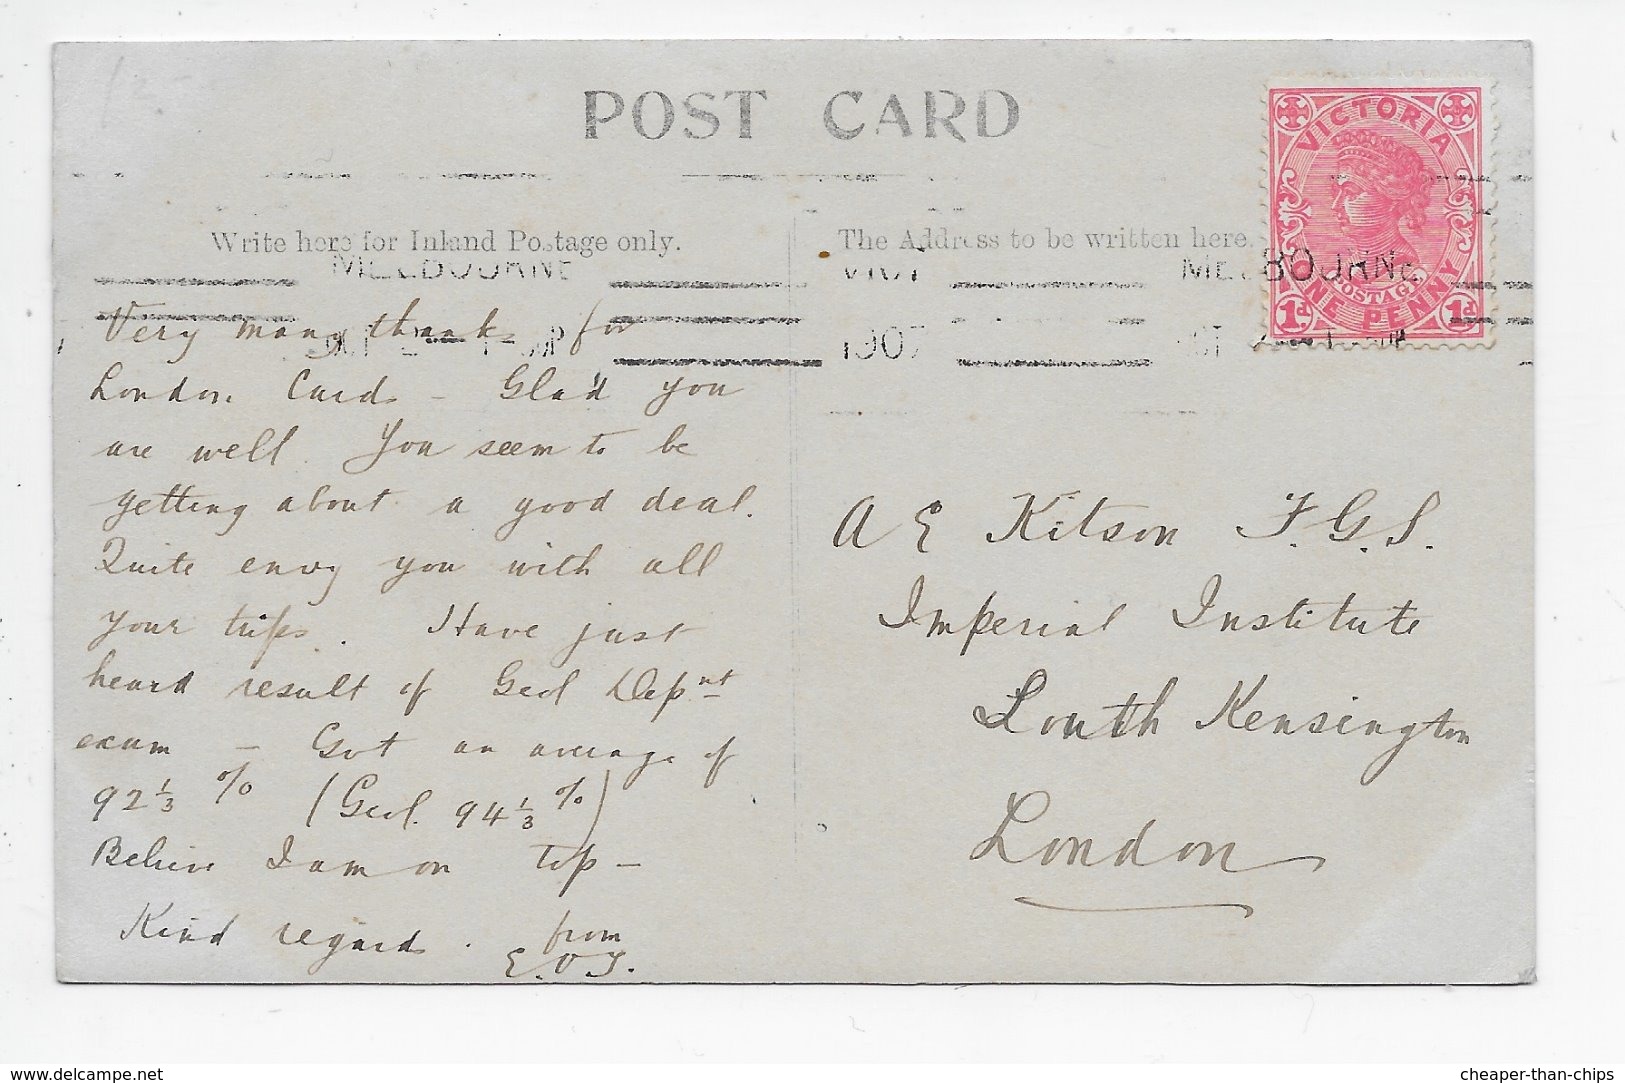 POST CARD
Write here for Inland Postage only.
The Address to be written here.
VICTORIA
POSTAGE
ONE PENNY
1d 1d
MELBOURNE
VICT
MELBOURNE
1907
Very many thanks for
London Cards – Glad you
are well. You seem to be
getting about a good deal.
Quite envy you with all
your trips. Have just
heard result of Geol Depnt
exam – Got an average of
92 1/3 % (Geol. 94 1/3 %)
Believe I am on top –
Kind regards. from
E.O.T.
A E Kitson F.G.S.
Imperial Institute
South Kensington
London
www.delcampe.net
cheaper-than-chips